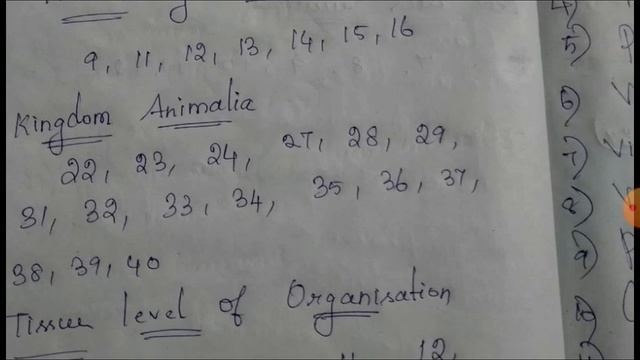 9, 11, 12, 13, 14, 15, 16
Kingdom Animalia
22, 23, 24, 27, 28, 29,
31, 32, 33, 34, 35, 36, 37,
38, 39, 40
Tissue level of Organisation
11 12
4)
5)
6)
7)
8)
9)